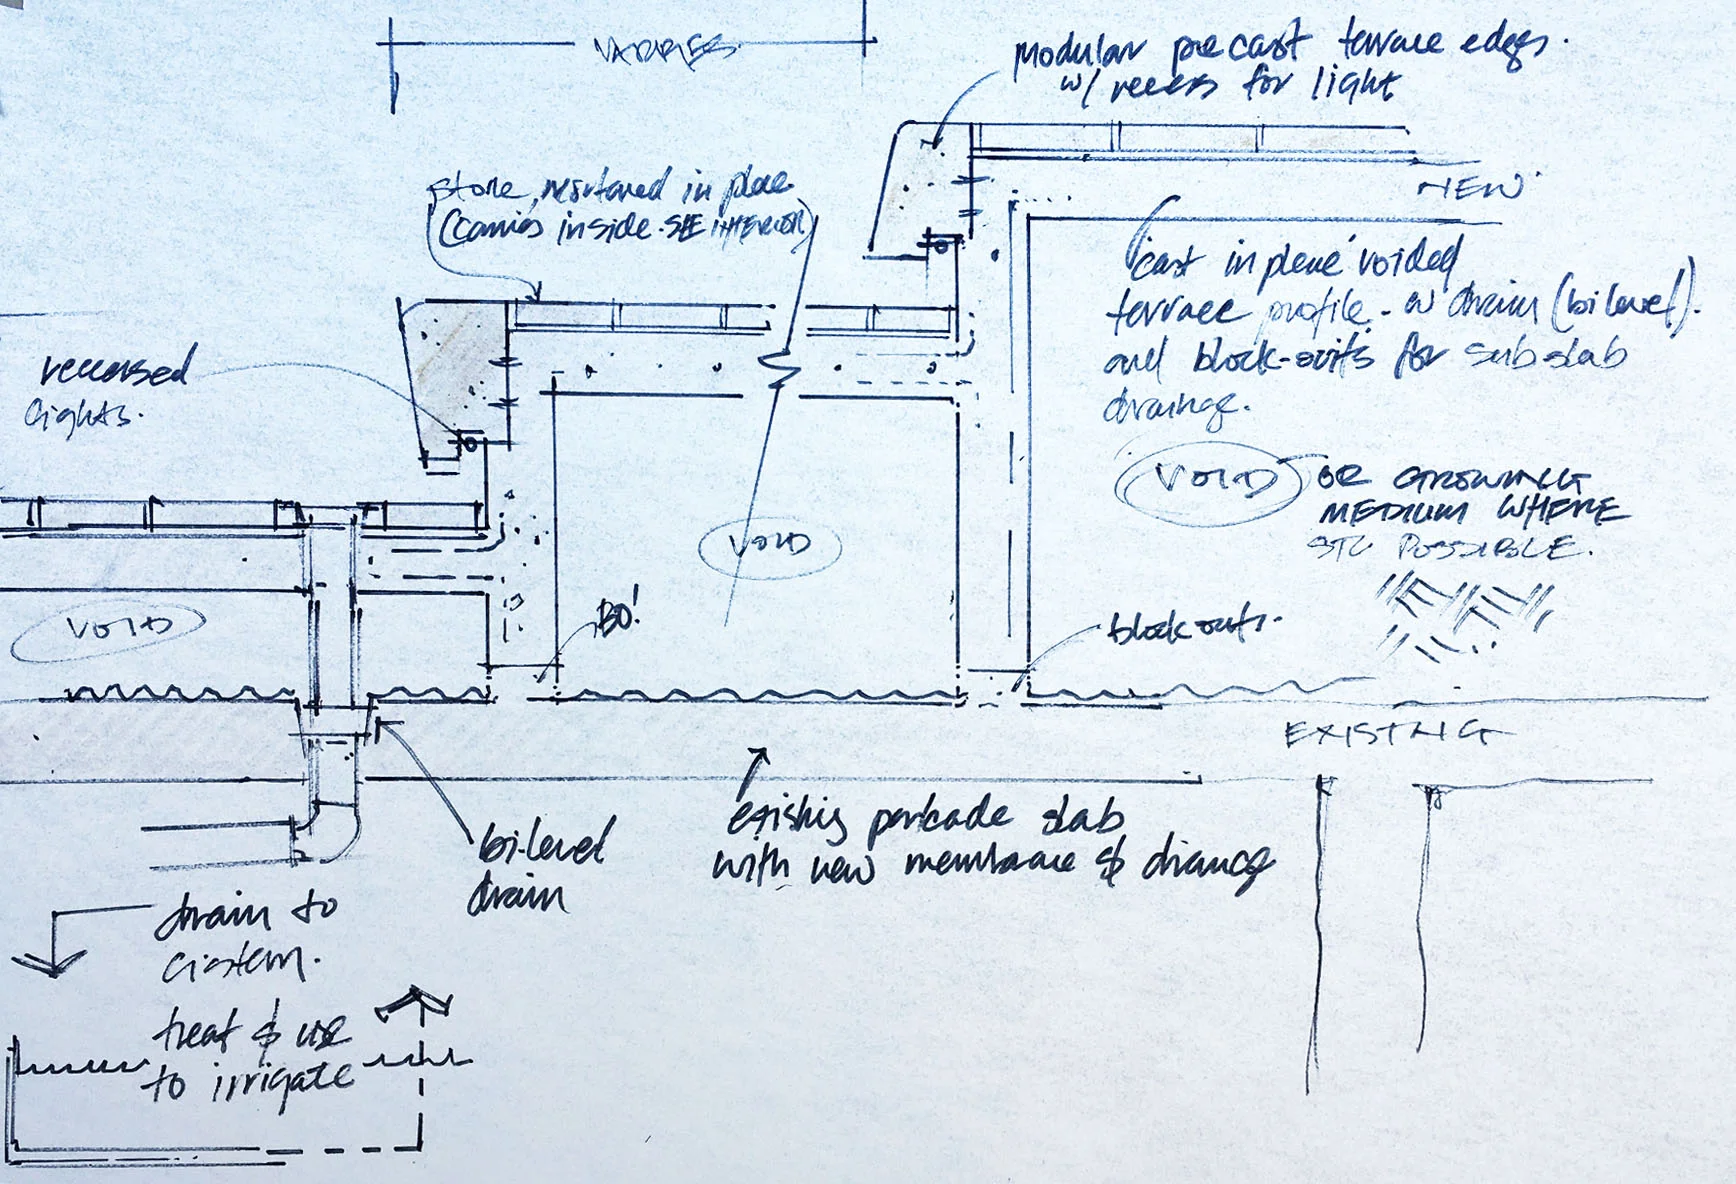 VARIES
modular precast terrace edges.
w/ recess for light
stone, in place
(carries inside. SEE INTERIOR)
NEW
'cast in place' voided
terrace profile - w drain (bi level).
and block-outs for sub slab
drainage.
recessed
lights.
VOID OR GROWING
MEDIUM WHERE
POSSIBLE.
VOID
VOID
BO!
block outs.
EXISTING
existing parkade slab
with new membrane & drainage
bi-level
drain
drain to
cistern.
treat & use
to irrigate